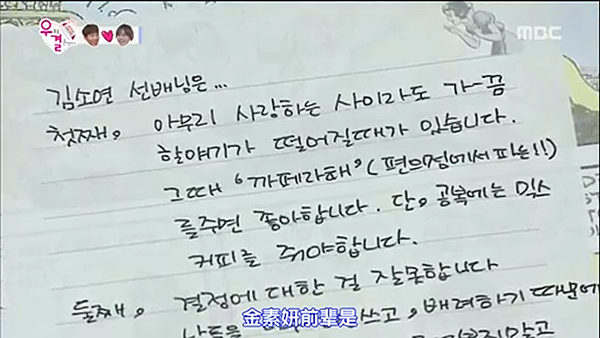 우리 결
MBC
김소연 선배님은...
첫째, 아무리 사랑하는 사이라도 가-끔
할얘기가 떨어질때가 있습니다.
그때 '까페라떼' (편의점에서 파는!!)
를주면 좋아합니다. 단, 공복에는 믹스
커피를 줘야합니다.
둘째, 결정에 대한 걸 잘못합니다
쓰고, 배려하기 때문에
金素妍前輩是